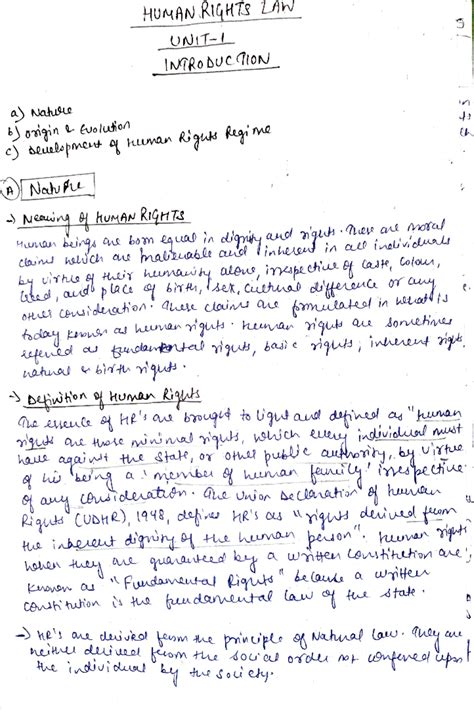 HUMAN RIGHTS LAW
UNIT-1
INTRODUCTION
a) Nature
b) Origin & Evolution
c) Development of Human Rights Regime
(A) Nature
→) Meaning of HUMAN RIGHTS
Human beings are born equal in dignity and rights. These are moral
claims which are inalienable and inherent in all individuals
by virtue of their humanity alone, irrespective of caste, colour,
creed, and place of birth, sex, cultural difference or any
other consideration. These claims are formulated in what is
today known as human rights. Human rights are sometimes
referred as fundamental rights, basic rights, inherent rights,
natural & birth rights.
→) Definition of Human Rights
The essence of HR's are brought to light and defined as "Human
rights are those minimal rights, which every individual must
have against the State, or other public authority, by virtue
of his being a 'member of human family' irrespective
of any consideration. The Union Declaration of Human
Rights (UDHR), 1948, defines HR's as "rights derived from
the inherent dignity of the human person". Human rights
when they are guaranteed by a written constitution are
known as "Fundamental Rights" because a written
constitution is the fundamental law of the state.
→) HR's are derived from the principle of Natural Law. They are
neither derived from the social order nor conferred upon
the individual by the society.